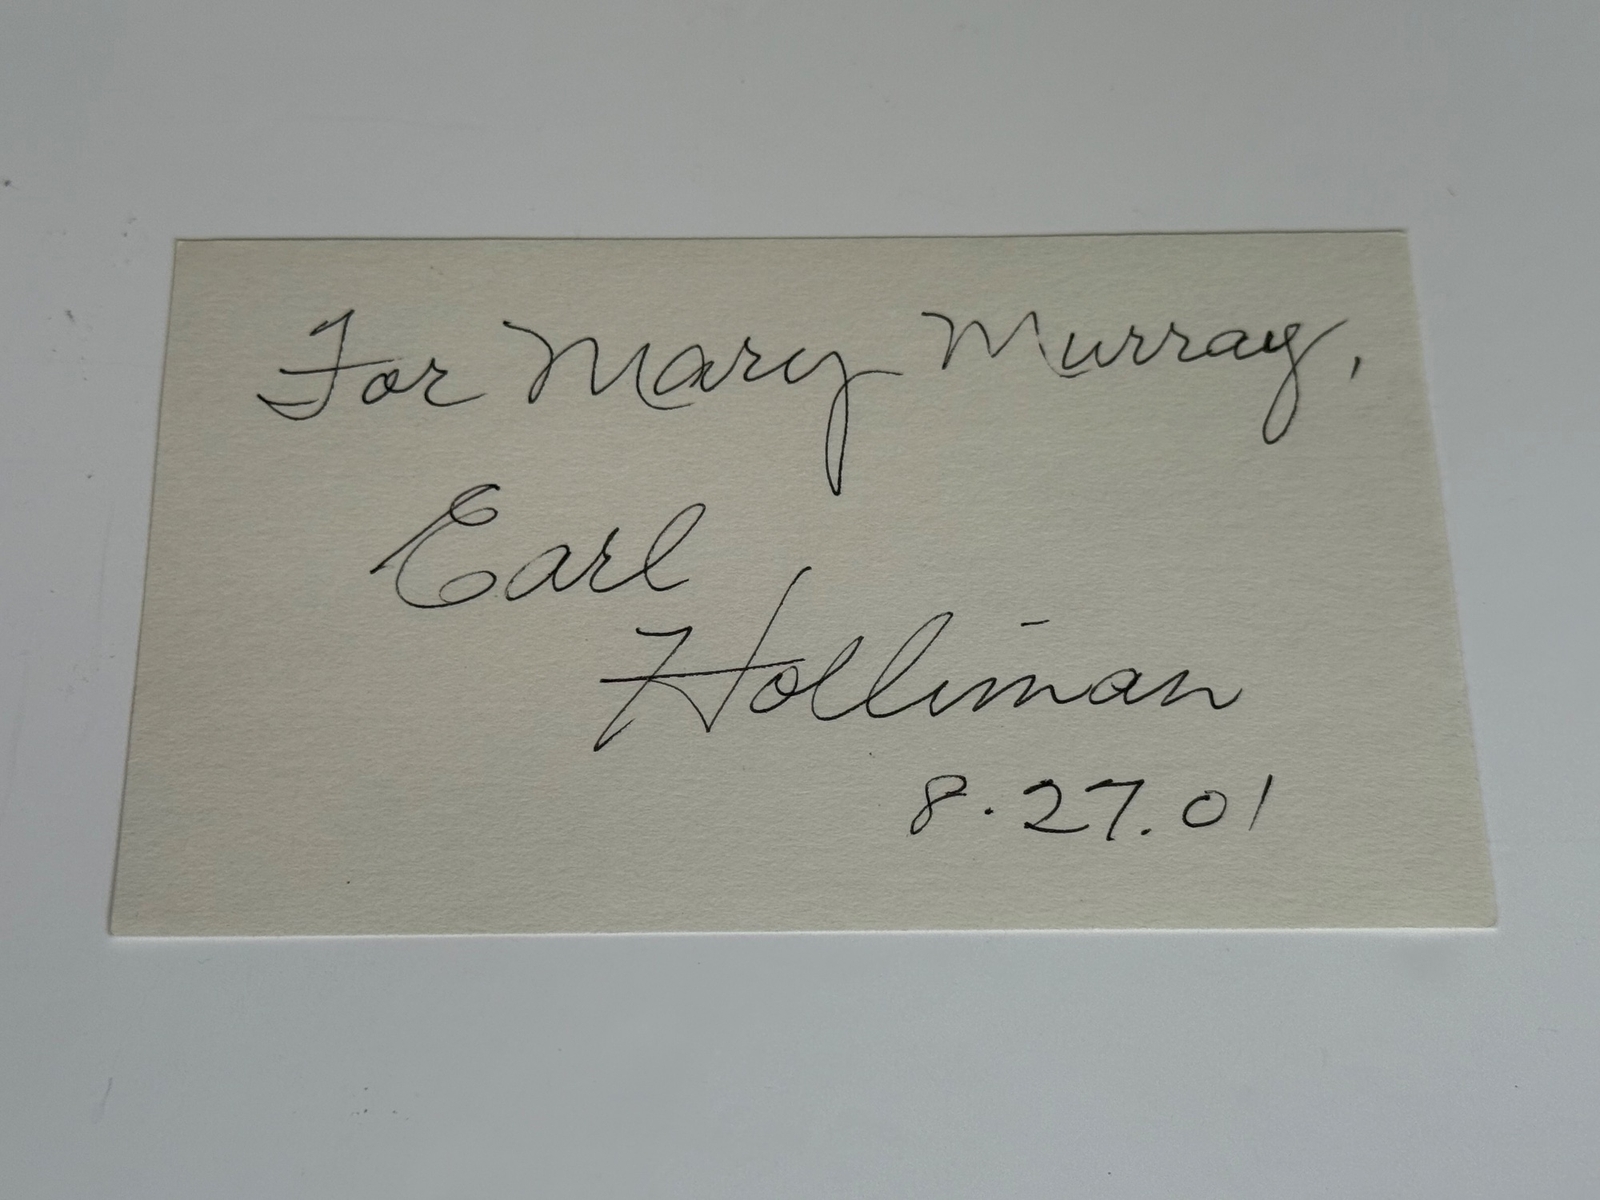 For Mary Murray,
Earl
Holliman
8.27.01